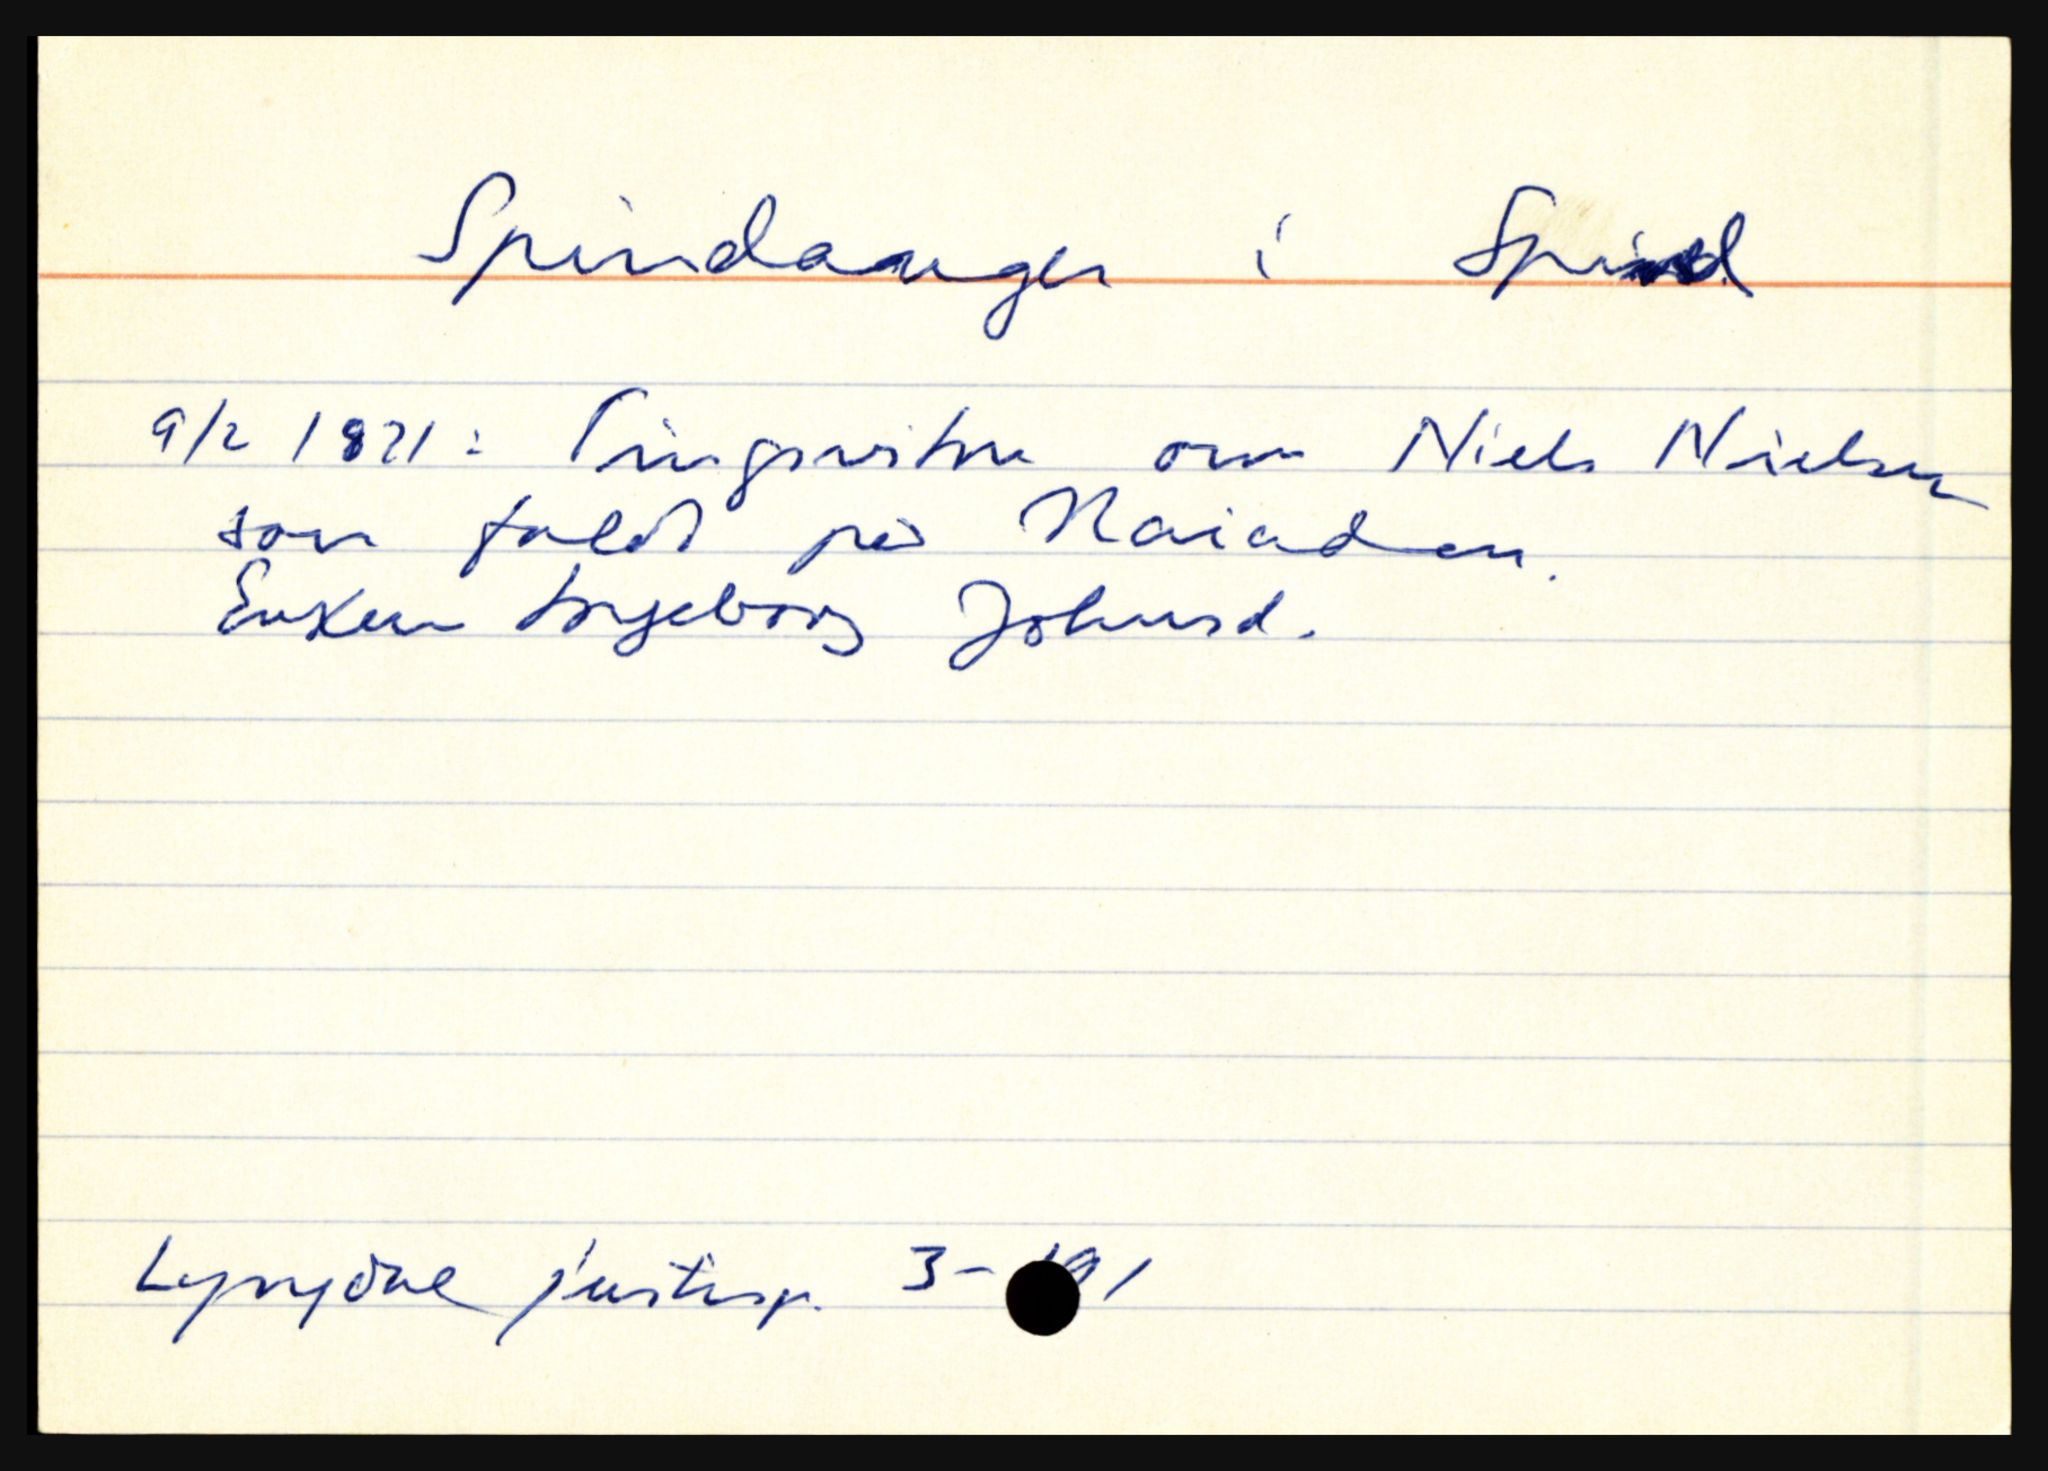 Spindanger i Spind
9/2 1821: Tingsvitne om Niels Nielsen
som faldt på Naiaden.
Enken Ingeborg Johnsd.
Lyngdal justisp. 3-191